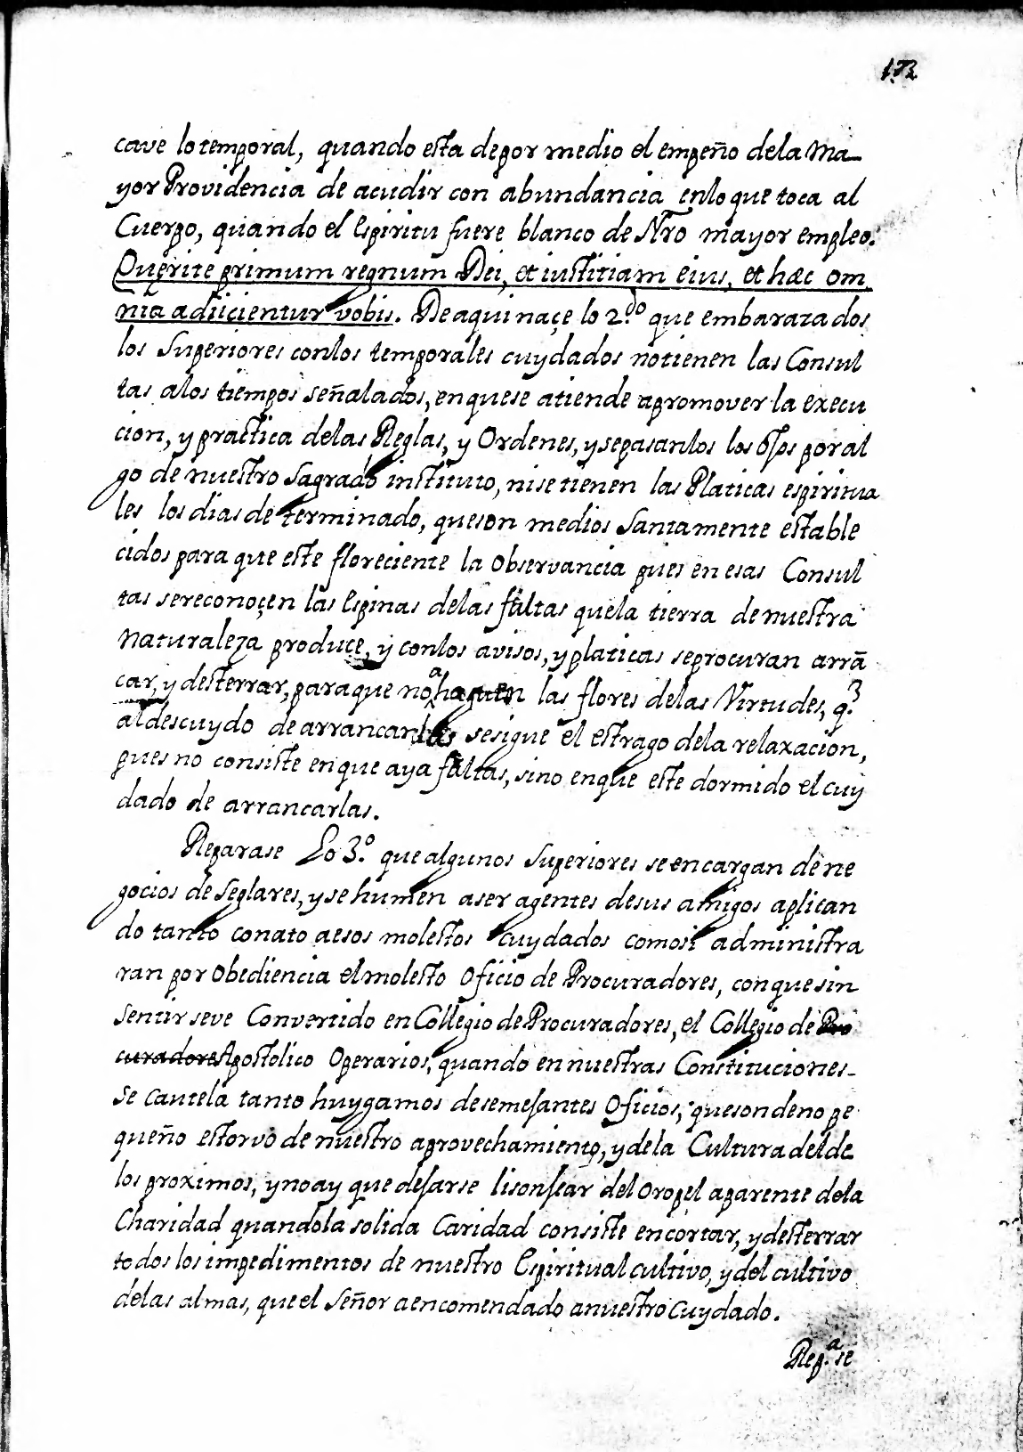 173
cave lo temporal, quando esta depor medio el empeño dela Ma
yor Providencia de acudir con abundancia enlo que toca al
Cuerpo, quando el Espiritu fuere blanco de Nro mayor empleo.
Querite primum regnum Dei, et iustitiam eius, et hæc om
nia adiicientur vobis. De aqui naçe lo 2.do que embarazados
los Superiores conlos temporales cuydados notienen las Consul
tas alos tiempos señalados, enquese atiende apromover la execu
cion, y practica delas Reglas, y Ordenes, ysepasanlos los ojos por al
go de nuestro Sagrado instituto, nisetienen las Platicas espiritua
les los dias determinado, queson medios Santamente estable
cidos para que este floreciente la Observancia pues en esas Consul
tas sereconoçen las Espinas delas faltas quela tierra de nuestra
Naturaleza produçe, y conlos avisos, yplaticas seprocuran arrã
car, y desterrar, paraque no ahoguen las flores delas Virtudes, q.e
aldescuydo de arrancarlas sesigue el estrago dela relaxacion,
pues no consiste enque aya faltas, sino enque este dormido el cuy
dado de arrancarlas.
Reparase Lo 3.o que algunos Superiores seencargan de ne
gocios de Seglares, yse humen aser agentes desus amigos aplican
do tanto conato aesos molestos cuydados comosi administra
ran por Obediencia elmolesto Oficio de Procuradores, conquesin
Sentir seve Convertido en Collegio de Procuradores, el Collegio de Pro
curadores Apostolico Operarios, quando en nuestras Constituciones
Se cautela tanto huygamos desemejantes Oficios, queson deno pe
queño estorvo de nuestro aprovechamiento, ydela Cultura delde
los proximos, ynoay que dejarse lisonjear del Oropel aparente dela
Charidad quandola solida Caridad consiste encortar, ydesterrar
todos los impedimentos de nuestro Espiritual cultivo, ydel cultivo
delas almas, que el Señor aencomendado anuestro Cuydado.
Rep.a se